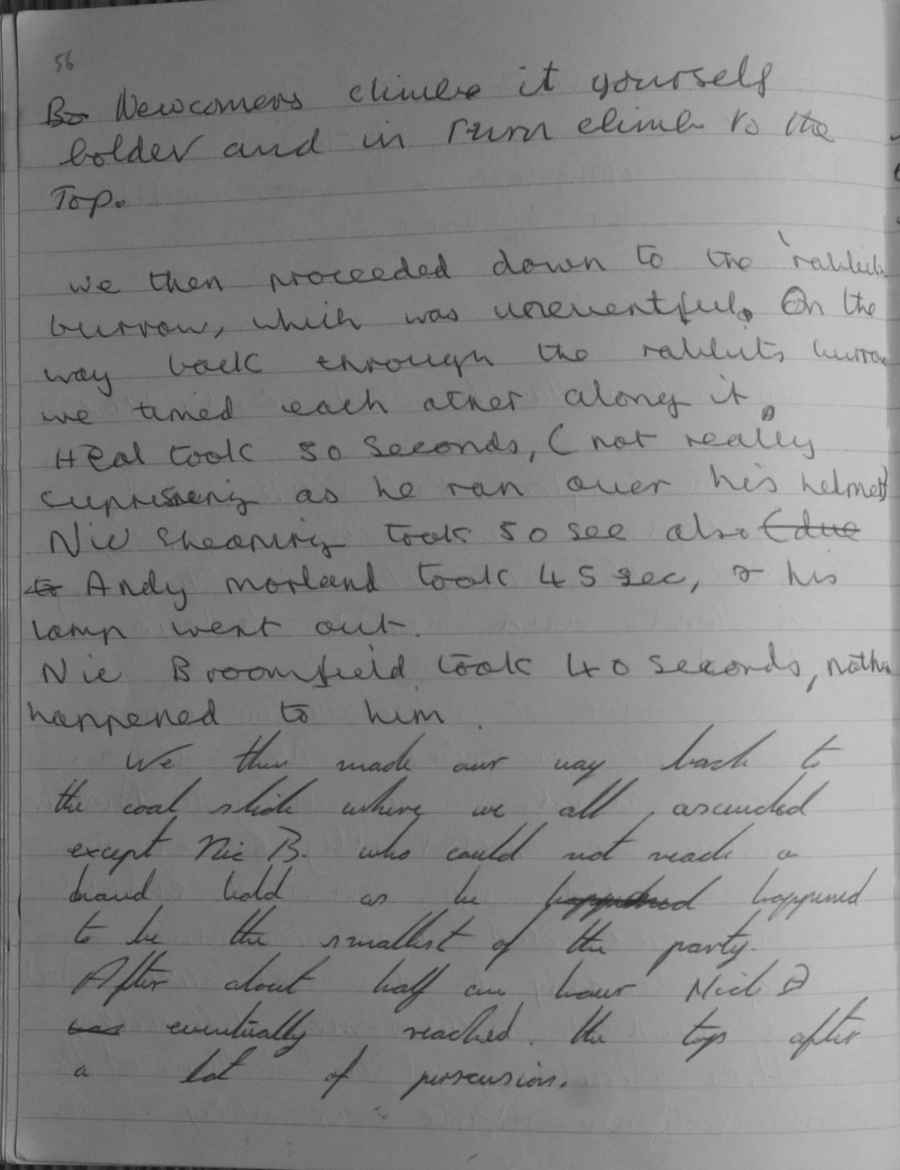 56
Bo Newcomers climbe it yourself
bolder and in turn climb to the
Top.
we then proceeded down to the 'rabbits
burrow, which was uneventful. On the
way back through the rabbits burrow
we timed each other along it.
Heal took 50 seconds, (not really
suprisseng as he ran over his helmet)
Nic Shearing took 50 sec also (due
to Andy morland took 45 sec, & his
lamp went out.
Nic Broomfield took 40 seconds, nothin
happened to him.
We then made our way back to
the coal slide where we all ascended
except Nic B. who could not reach a
hand hold as he happened happened
to be the smallest of the party.
After about half an hour Nick B
was eventually reached the top after
a lot of persuasion.